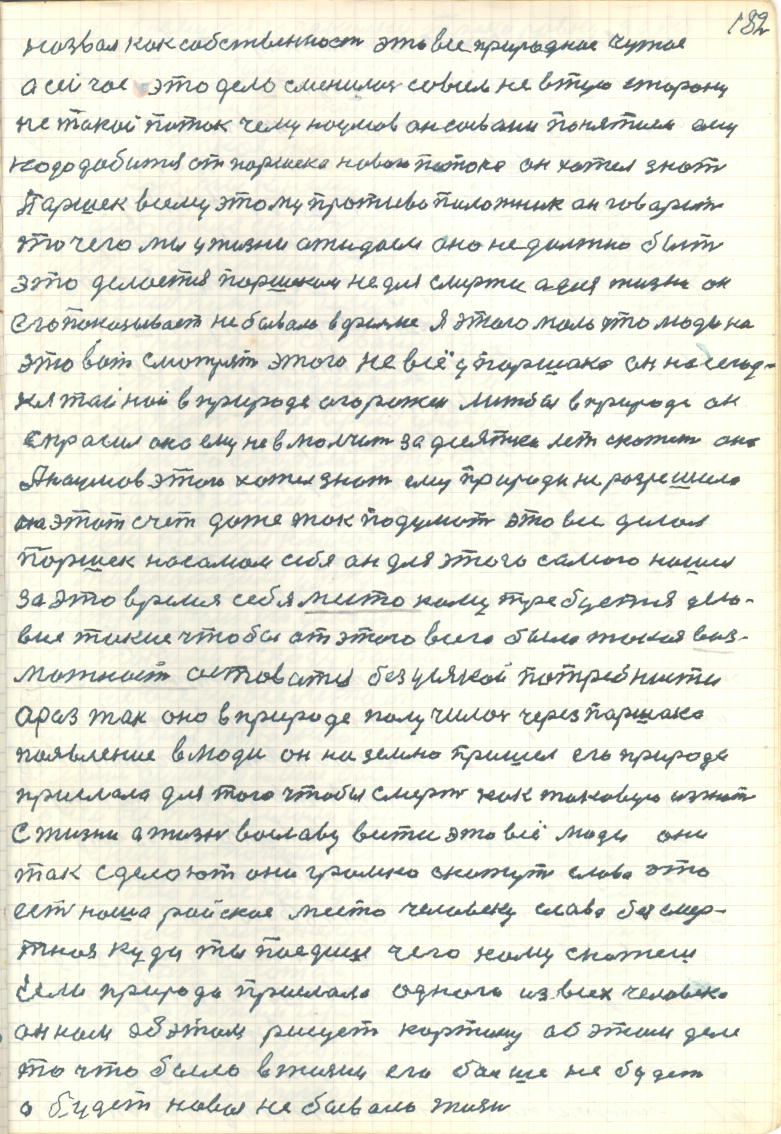 182
назвал как собственност это все природнае чужое
а сейчас это дело сменилос совсем не в тую сторону
не такой поток чему наумов он своим понятием ему
надо добится от паршека нового потока он хотел знат
Паршек всему этому противоположник он говарит
то чего мы у жизни ожидаем оно не должно быт
это делается паршеком не для смерти а для жизни он
его показывает не бывало в время Я этого мало что люди на
это вот смотрят этого не всё у паршека он на сегод-
ня тайной в природе огорожен митбы в природе он
спрасил она ему не вмолчит за десятки лет скажет она
А наумов этого хотел знат ему природа не разрешила
на этот счет даже так подумат это все делал
Паршек на самом себя он для этого самого нашел
за это время себя место кому требуется усло-
вие такие чтобы от этого всего была такая воз-
можност оставатся без усякой потребности
а раз так оно в природе получилос через паршека
появление в люди он на землю пришел его природа
прислала для того чтобы смерт как таковую изжит
с жизни а жизн во славу вести это всё люди они
так сделают они громко скажут слова это
ест наша райское место человеку слава бессмер-
тная куда ты поедиш чего кому скажеш
если природа прислала одного из всех человека
он нам об этом рисует картину об этом деле
то что было в жизни его балше не будет
а будет новая не бывало жизн